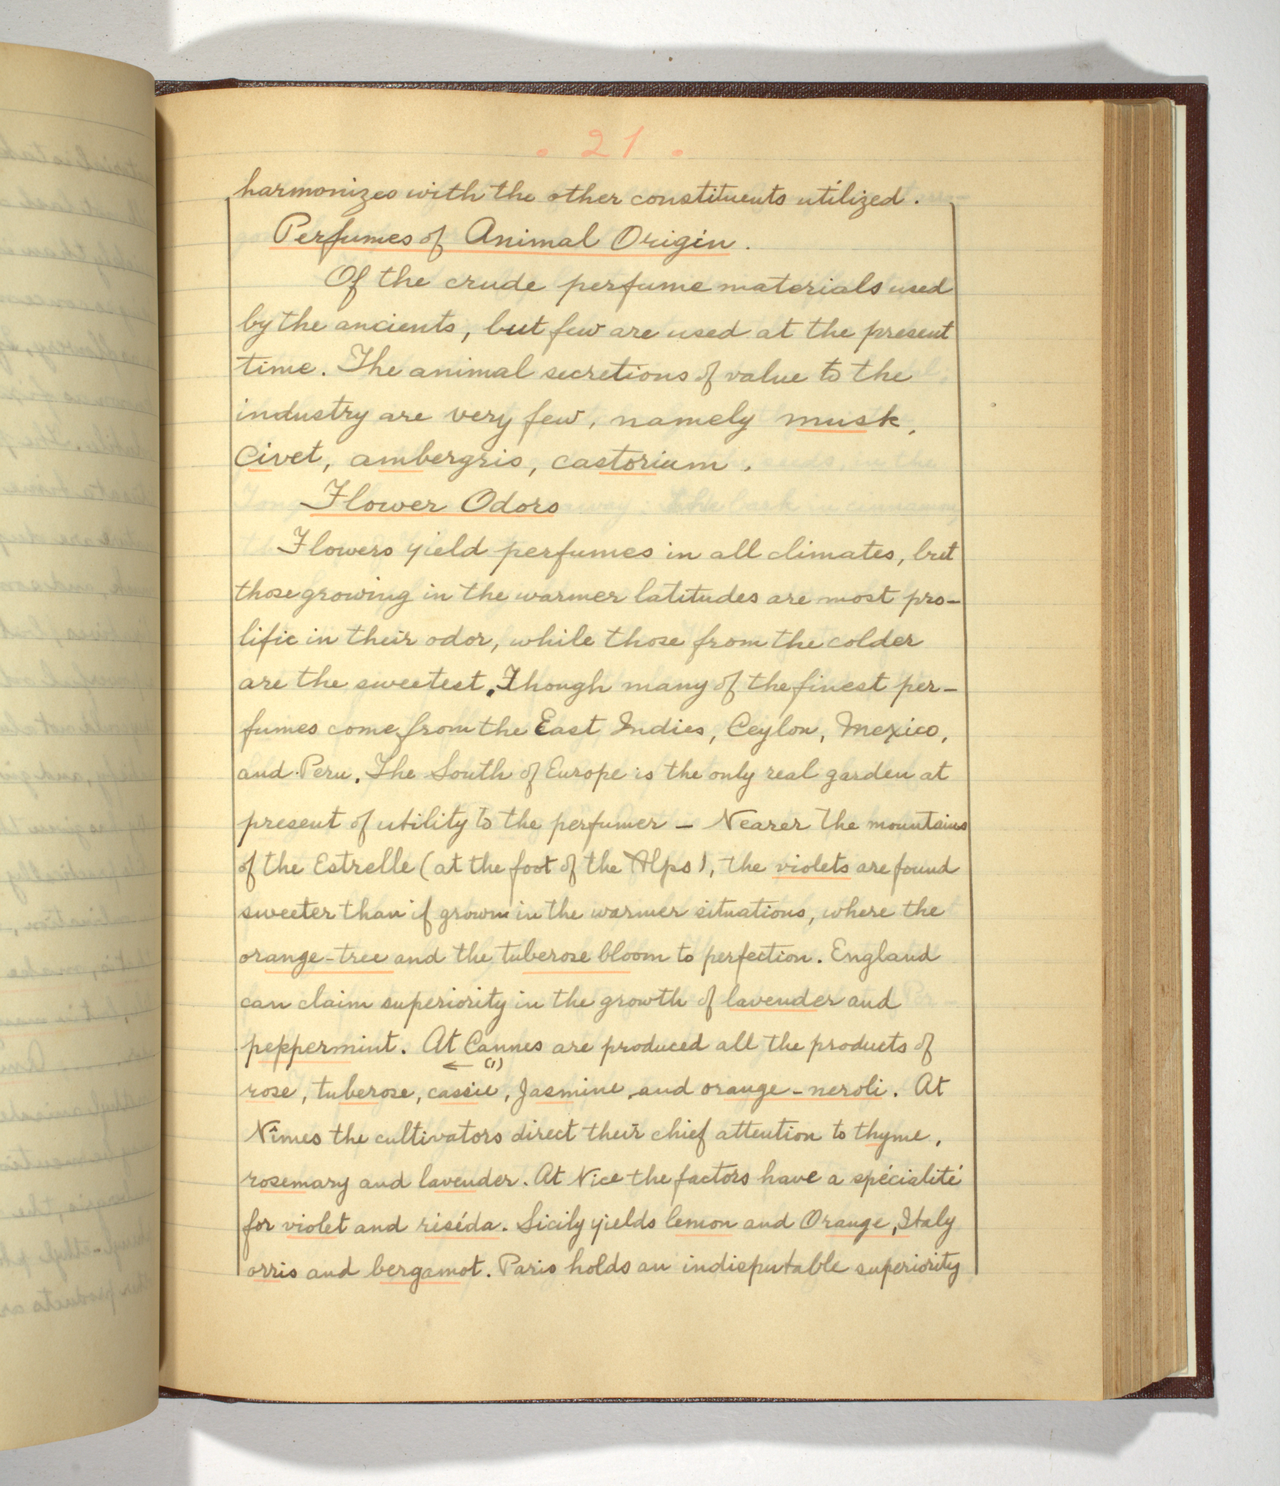 . 21 .
harmonizes with the other constituents utilized.
Perfumes of Animal Origin.
Of the crude perfume materials used
by the ancients, but few are used at the present
time. The animal secretions of value to the
industry are very few, namely musk,
Civet, ambergris, castorium.
Flower Odors
Flowers yield perfumes in all climates, but
those growing in the warmer latitudes are most pro-
lific in their odor, while those from the colder
are the sweetest. Though many of the finest per-
fumes come from the East Indies, Ceylon, Mexico,
and Peru. The South of Europe is the only real garden at
present of utility to the perfumer - Nearer the mountains
of the Estrelle (at the foot of the Alps), the violets are found
sweeter than if grown in the warmer situations, where the
orange-tree and the tuberose bloom to perfection. England
can claim superiority in the growth of lavender and
peppermint. At Cannes are produced all the products of
← (1)
rose, tuberose, cassie, Jasmine, and orange-neroli. At
Nîmes the cultivators direct their chief attention to thyme,
rosemary and lavender. At Nice the factors have a spécialité
for violet and riséda. Sicily yields lemon and Orange, Italy
orris and bergamot. Paris holds an indisputable superiority